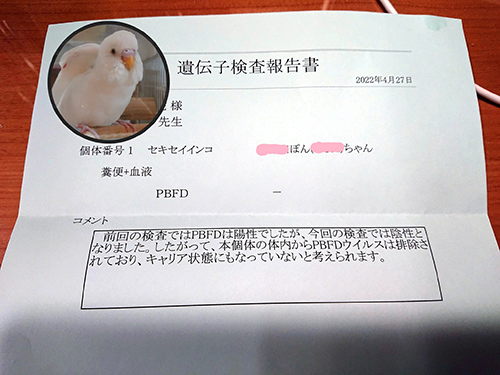 遺伝子検査報告書
2022年4月27日
様
先生
個体番号1 セキセイインコ ぽん ちゃん
糞便+血液
PBFD －
コメント
前回の検査ではPBFDは陽性でしたが、今回の検査では陰性と
なりました。したがって、本個体の体内からPBFDウイルスは排除さ
れており、キャリア状態にもなっていないと考えられます。